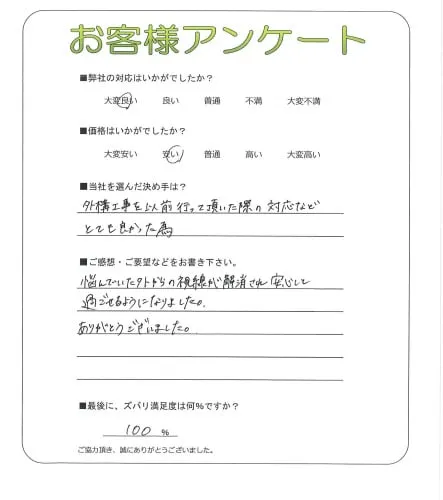 お客様アンケート
■弊社の対応はいかがでしたか?
大変良い 良い 普通 不満 大変不満
■価格はいかがでしたか?
大変安い 安い 普通 高い 大変高い
■当社を選んだ決め手は?
外構工事を以前行って頂いた際の対応など
とても良かった為
■ご感想・ご要望などをお書き下さい。
悩んでいた外からの視線が解消され安心して
過ごせるようになりました。
ありがとうございました。
■最後に、ズバリ満足度は何%ですか?
100 %
ご協力頂き、誠にありがとうございました。